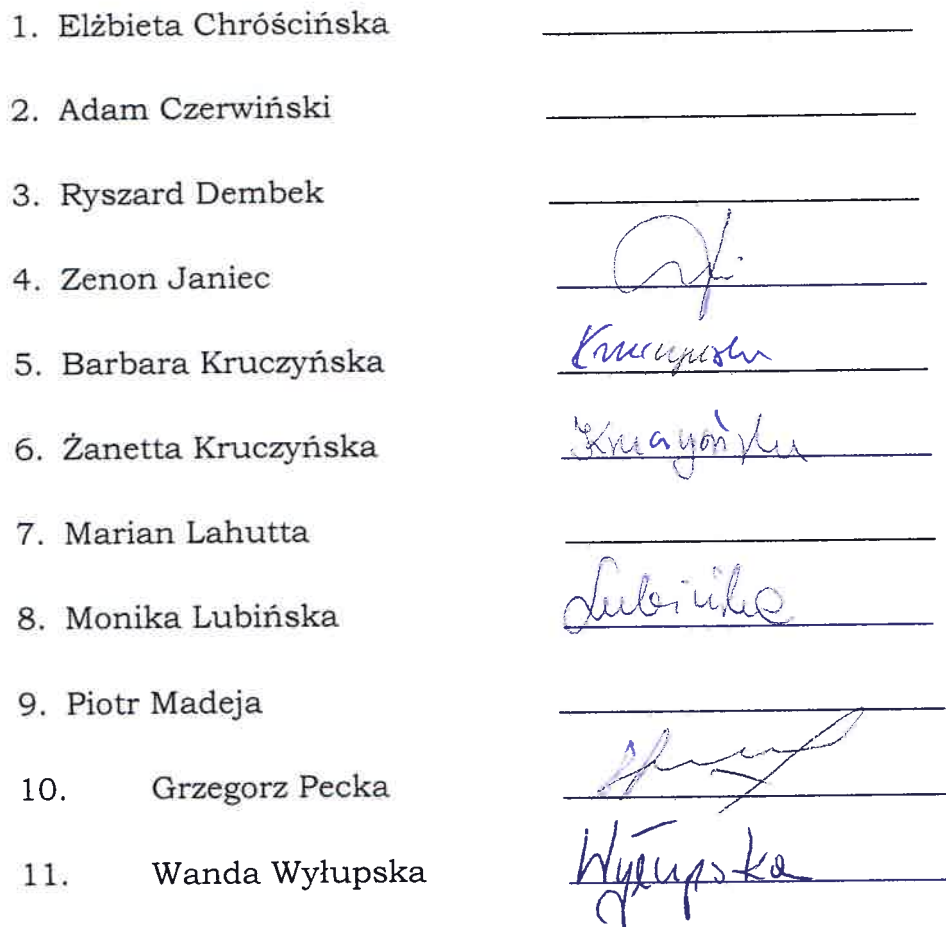 1. Elżbieta Chróścińska
2. Adam Czerwiński
3. Ryszard Dembek
4. Zenon Janiec
5. Barbara Kruczyńska
6. Żanetta Kruczyńska Kruczyńska
7. Marian Lahutta
8. Monika Lubińska Lubińska
9. Piotr Madeja
10. Grzegorz Pecka
11. Wanda Wyłupska Wyłupska